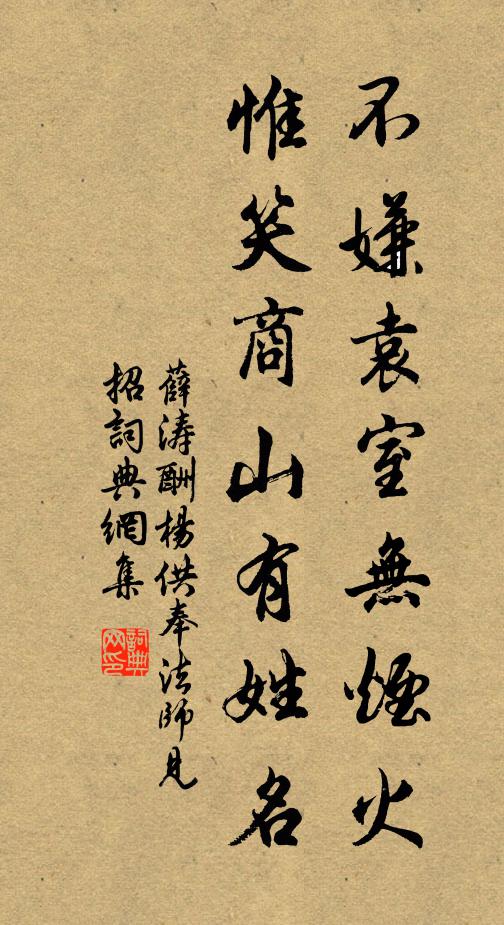 不嫌袁室無煙火
惟笑商山有姓名
薛濤酬楊供奉法師見
招詞典網集
詞典
网印